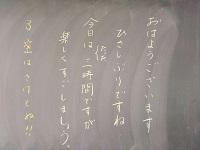 おはようございます
ひさしぶりですね
今日はただ二時間ですが
楽しくすごしましょう。
3密はさけてね!!